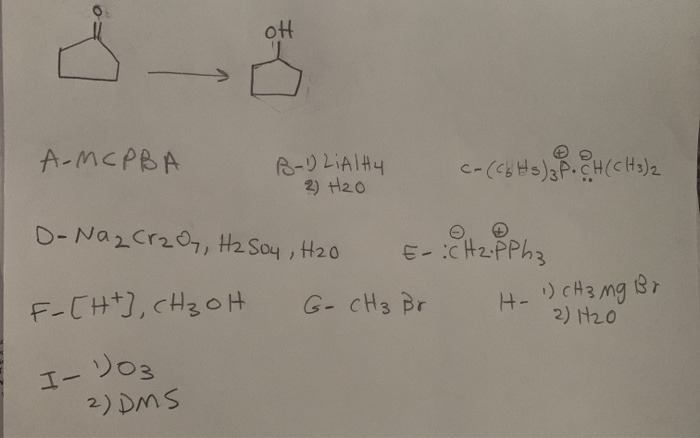 O
OH
A-MCPBA
B-1) LiAlH4
2) H2O
C-(C6H5)3P⊕.⊖C̤H(CH3)2
D-Na2Cr2O7, H2SO4, H2O
E- ⊖:CH2.⊕PPh3
F-[H+], CH3OH
G- CH3Br
H- 1) CH3MgBr
2) H2O
I- 1) O3
2) DMS